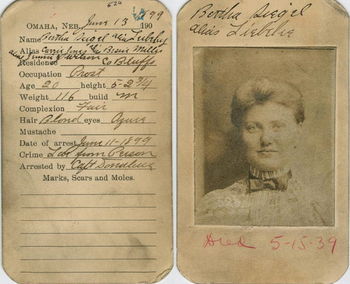 OMAHA, NEB., June 13 1899
Name Bertha Seigel alias Liebelie
Alias Carrie Jones Bessie Miller
alias Minnie
Residence Co Bluffs
Occupation Prost
Age 20 height 5-2 3/4
Weight 116 build m
Complexion Fair
Hair Blond eyes Azure
Mustache
Date of arrest June 11-1899
Crime Lar from Person
Arrested by Capt Donahue
Marks, Scars and Moles.
Bertha Seigel
alias Liebelie
Died 5-15-39